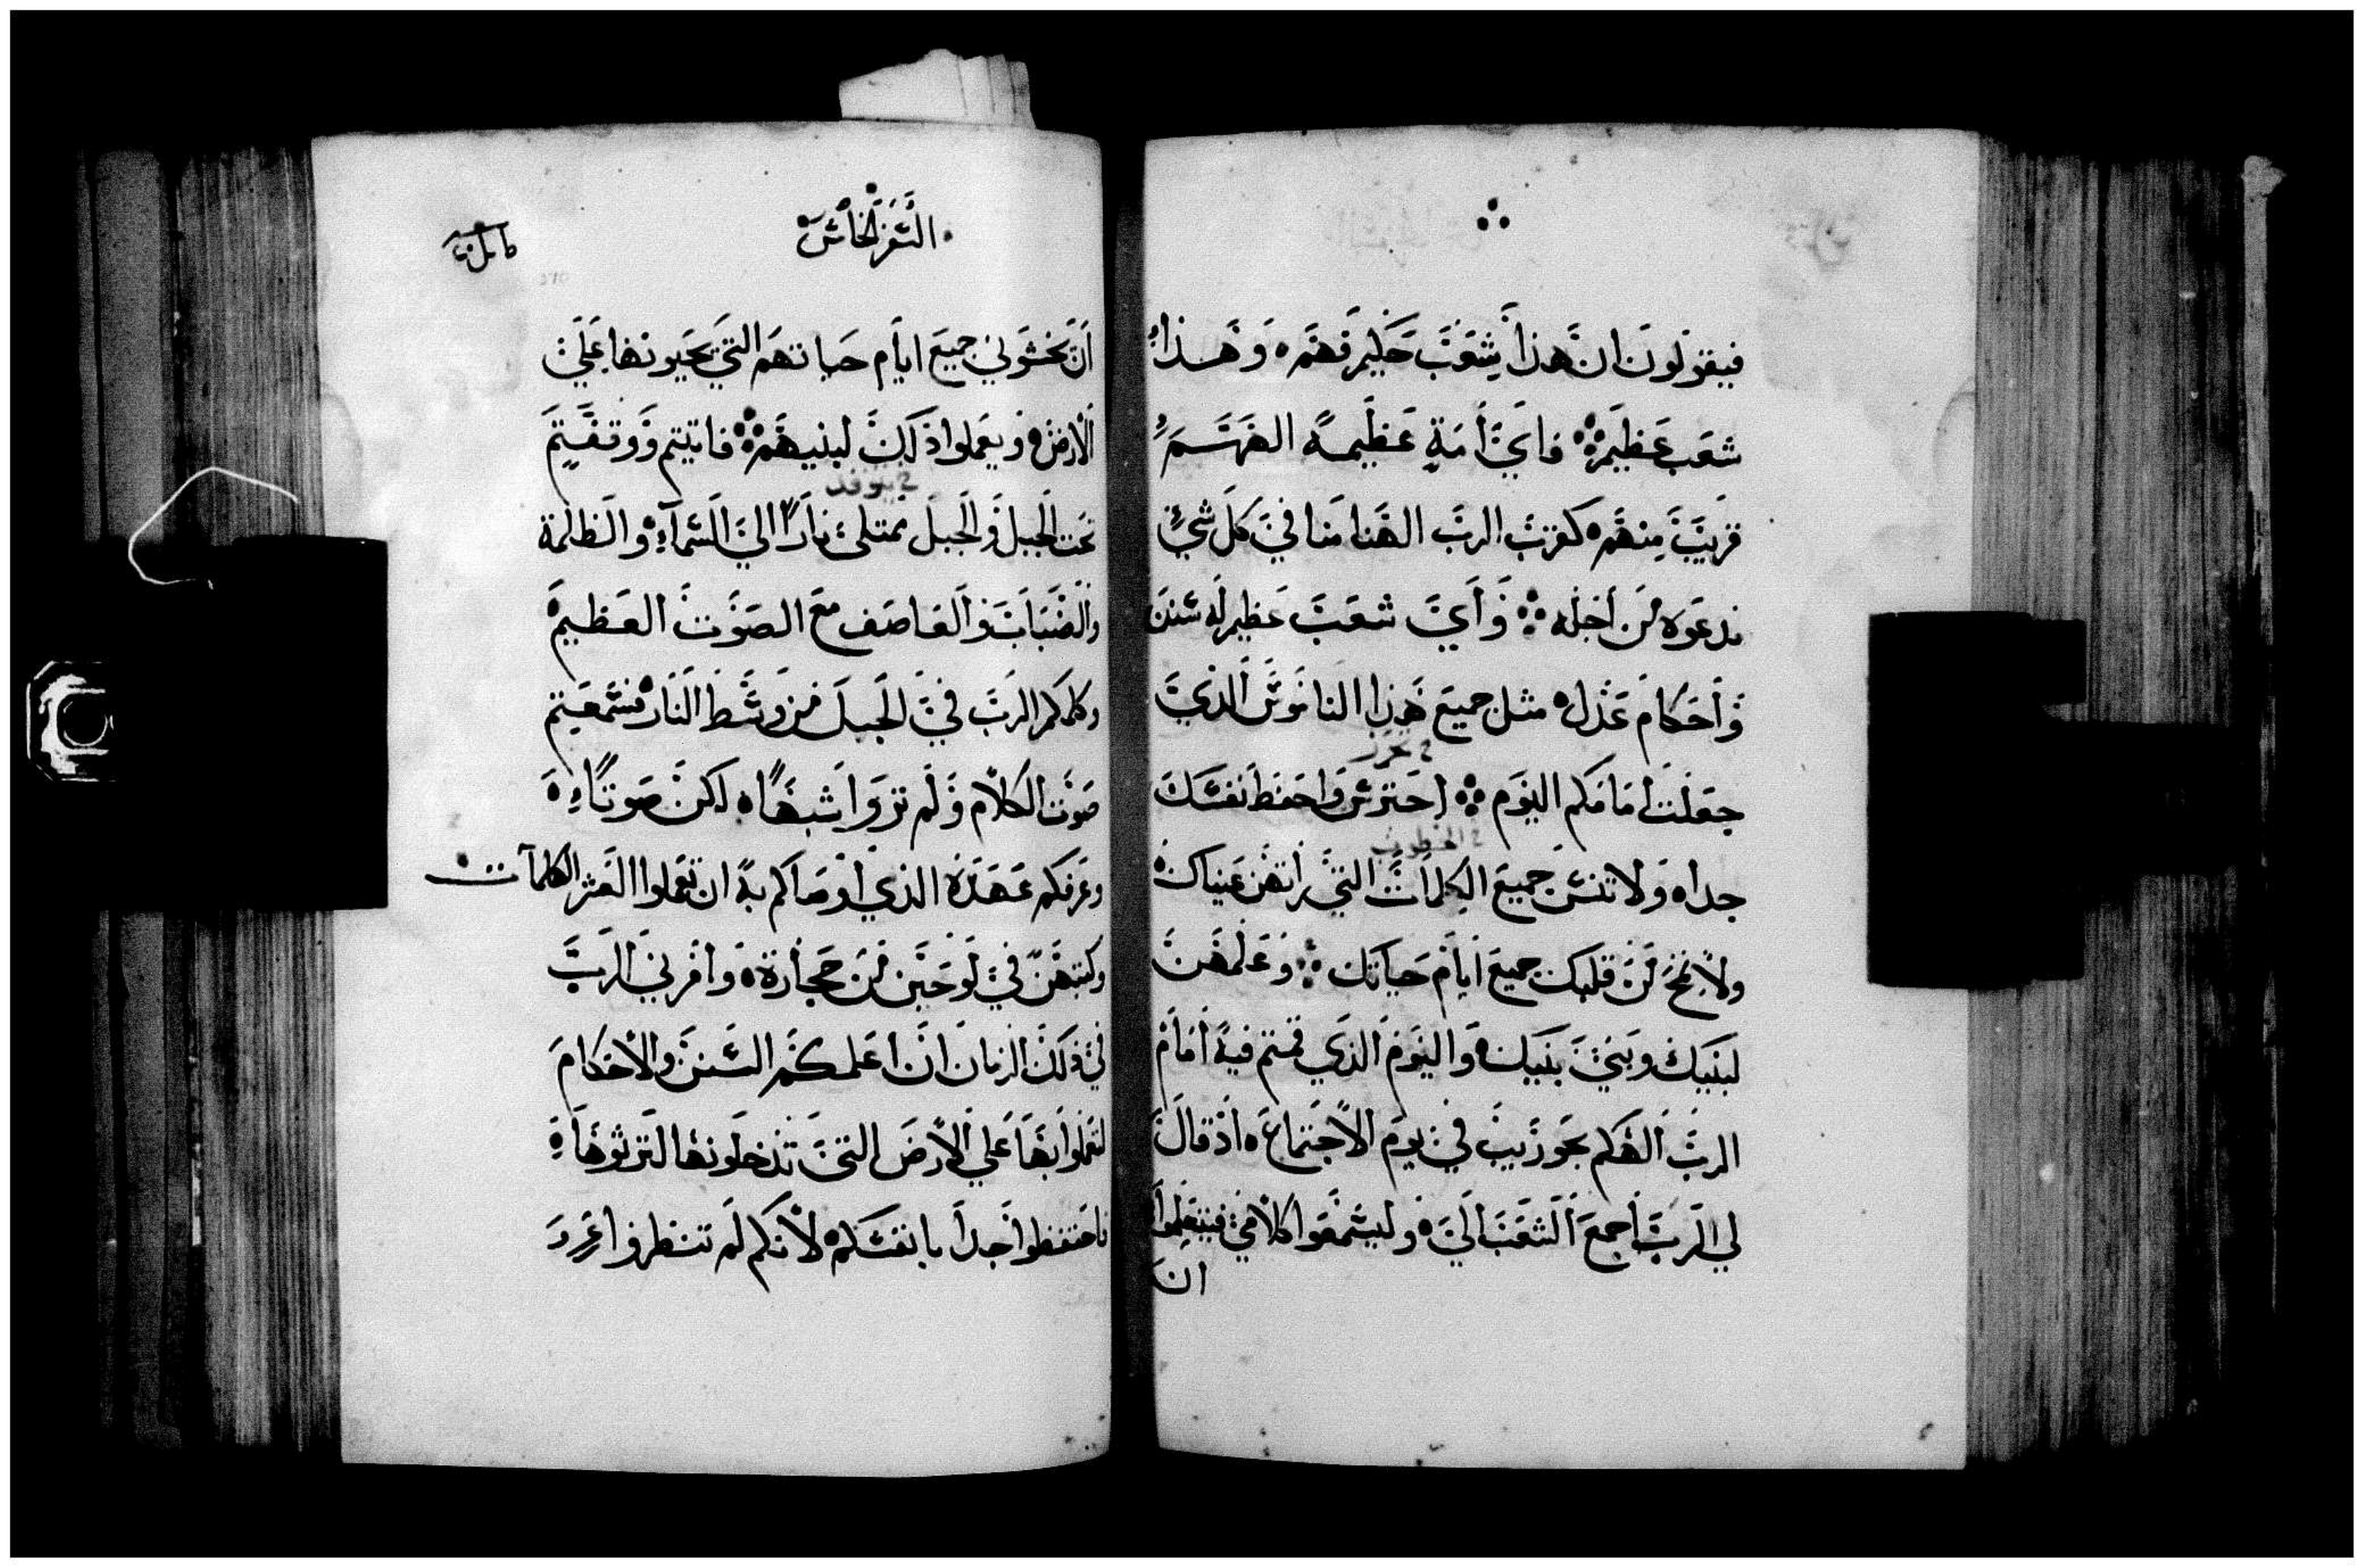 فيقولون ان هذا شعب حكيم فهم وهذا
شعب عظيم فاي أمة عظيمه الههم
قريب منهم كقرب الرب الهنا منا في كل شي
ندعوه من أجله وأي شعب عظيم له سنن
وأحكام عدل مثل جميع هذا الناموس الذي
جعلت أمامكم اليوم احترس واحفظ نفسك
جدا ولا تنس جميع الكلمات التي راتهن عيناك
ولا تخ من قلبك جميع أيام حياتك وعلمهن
لبنيك وبني بنيك واليوم الذي قمتم فيه أمام
الرب الهكم بحوريب في يوم الاجتماع اذ قال
لي الرب أجمع الشعب الي وليسمعوا كلامي فيتعلموا
ان
السفر الخامس
أن يخشوني جميع ايام حياتهم التي يحيونها علي
الأرض ويعملوا ذلك لبنيهم فاتيتم ووقفتم
تحت الجبل والجبل يمتلئ نارا الي السماء والظلمة
والضباب والعاصف مع الصوت العظيم
وكلمكم الرب في الجبل من وسط النار فسمعتم
صوت الكلام ولم تروا شبها لكن صوتا
وعرفكم عهده الذي أوصاكم به ان تعملوا العشر الكلمات
وكتبهن في لوحين من حجارة وأمرني الرب
في ذلك الزمان ان اعلمكم السنن والاحكام
لتعملوا بها علي الأرض التي تدخلونها لترثوها
فاحتفظوا جدا بانفسكم لأنكم لم تنظروا